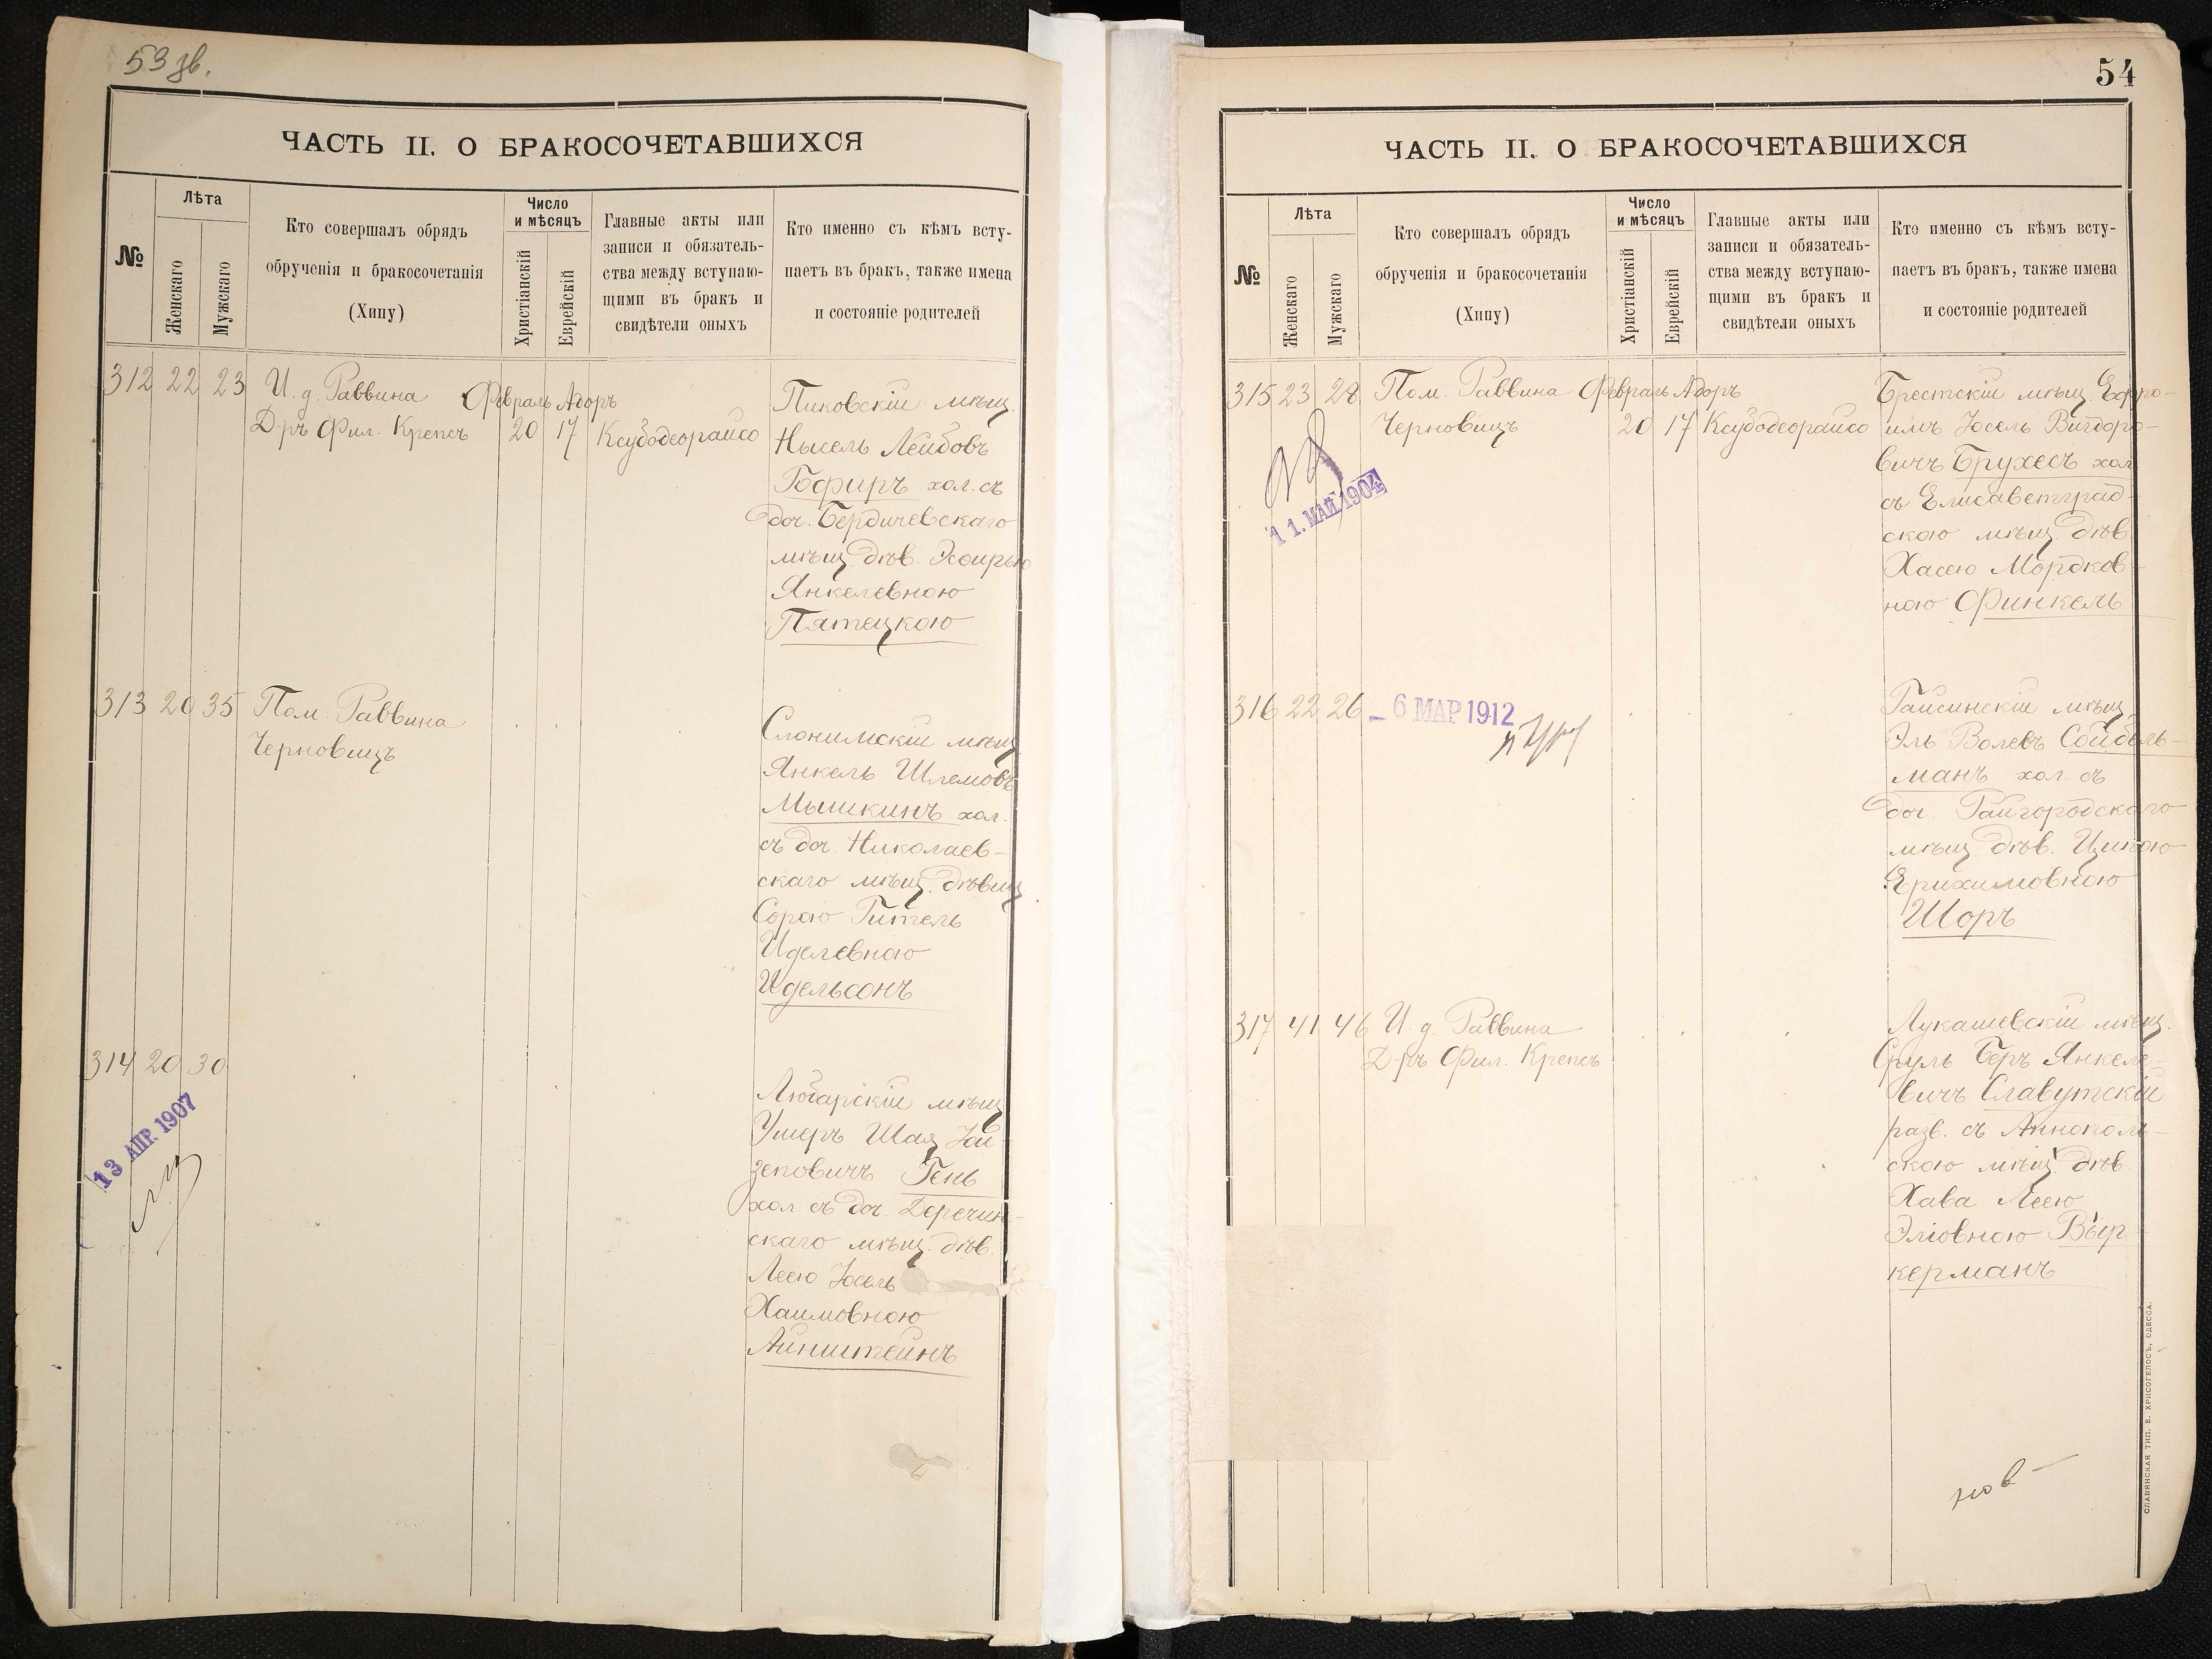 53 зв.
ЧАСТЬ II. О БРАКОСОЧЕТАВШИХСЯ
№
Лѣта
Женскаго
Мужскаго
Кто совершалъ обрядъ
обрученія и бракосочетанія
(Хипу)
Число
и мѣсяцъ
Христіанскій
Еврейскій
Главные акты или
записи и обязатель-
ства между вступаю-
щими въ бракъ и
свидѣтели оныхъ
Кто именно съ кѣмъ всту-
паетъ въ бракъ, также имена
и состояніе родителей
312 22 23 И. д. Раввина Февраль Адоръ
Д-ръ Фил. Крепсъ 20 17 Ксубодеорайсо
Пиковскій мѣщ.
Нысель Лейбовъ
Гофиръ хол. съ
доч. Бердичевскаго
мѣщ. дѣв. Эсѳирью
Янкелевною
Пятецкою
313 20 35 Пом. Раввина
Черновицъ
Слонимскій мѣщ.
Янкель Шлемовъ
Мышкинъ хол.
съ доч. Николаев-
скаго мѣщ. дѣвиц.
Сорою Гитель
Иделевною
Идельсонъ
314 20 30
13 АПР. 1907
Любарскій мѣщ.
Умеръ Шая Іой-
зеповичъ Гень
хол. съ доч. Деречин-
скаго мѣщ. дѣв.
Леею Іосель
Хаимовною
Айнштейнъ
54
ЧАСТЬ II. О БРАКОСОЧЕТАВШИХСЯ
№
Лѣта
Женскаго
Мужскаго
Кто совершалъ обрядъ
обрученія и бракосочетанія
(Хипу)
Число
и мѣсяцъ
Христіанскій
Еврейскій
Главные акты или
записи и обязатель-
ства между вступаю-
щими въ бракъ и
свидѣтели оныхъ
Кто именно съ кѣмъ всту-
паетъ въ бракъ, также имена
и состояніе родителей
315 23 28 Пом. Раввина Февраль Адоръ
Черновицъ 20 17 Ксубодеорайсо
11. МАЙ 1904
Брестскій мѣщ. Ефро-
имъ Іосель Вигдоро-
вичъ Брухесъ хол.
съ Елисаветград-
скою мѣщ. дѣв.
Хасею Мордков-
ною Финкель
316 22 26
- 6 МАР 1912
Гайсинскій мѣщ.
Эль Волевъ Сойбель-
манъ хол. съ
доч. Райгородскаго
мѣщ. дѣв. Ципою
Ерихимовною
Шоръ
317 41 46 И. д. Раввина
Д-ръ Фил. Крепсъ
Лукашевскій мѣщ.
Сруль Беръ Янкеле-
вичъ Славутскій
разв. съ Аннополь-
скою мѣщ. дѣв.
Хава Леею
Эліовною Вѣр-
керманъ
СЛАВЯНСКАЯ ТИП. Е. ХРИСОГЕЛОСЪ, ОДЕССА.